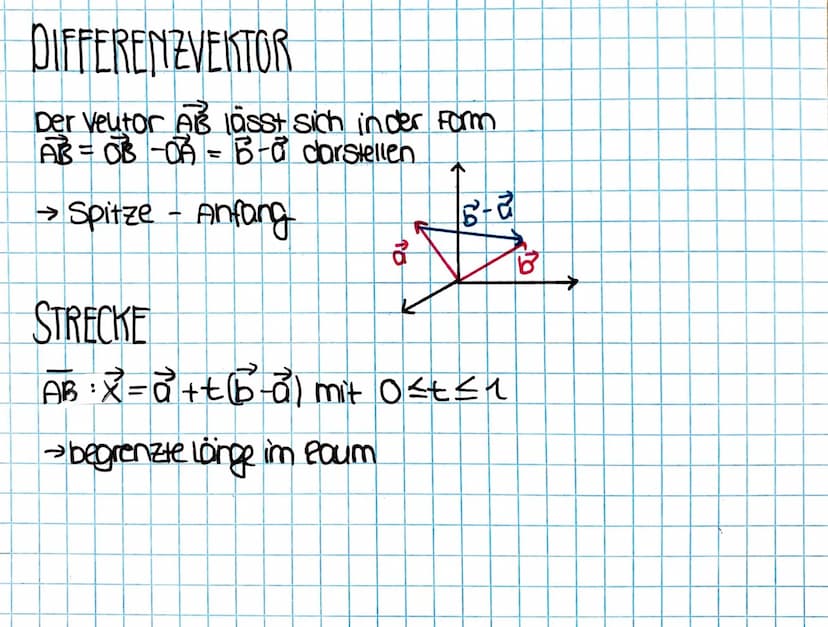 DIFFERENZVEKTOR
Der Vektor A⃗B⃗ lässt sich in der Form
A⃗B⃗ = O⃗B⃗ - O⃗A⃗ = b⃗ - a⃗ darstellen
→ Spitze - Anfang
b⃗ - a⃗
a⃗
b⃗
STRECKE
A̅B̅ : x⃗ = a⃗ + t(b⃗ - a⃗) mit 0 ≤ t ≤ 1
→ begrenzte Länge im Raum